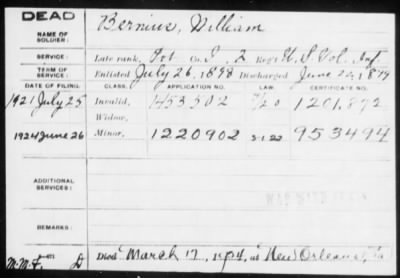 DEAD
NAME OF SOLDIER: Bernius, William
SERVICE: Late rank, Pvt Co. I, 2 Reg't U.S. Vol. Inf.
TERM OF SERVICE: Enlisted July 26, 1898 Discharged June 1899
DATE OF FILING. CLASS. APPLICATION NO. CERTIFICATE NO.
1921 July 25 Invalid, 1453902 1201,872
Widow,
1924 June 26 Minor, 1220902 953494
ADDITIONAL SERVICES:
REMARKS:
Died March 17, 1924, at New Orleans, La